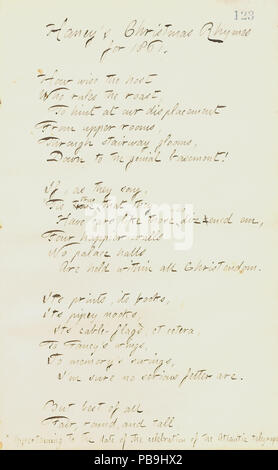 123
Haney's Christmas Rhymes
for 1861.
How wise the host
Who rules the roast,
To hint at our displacement
From upper rooms,
Through stairway glooms,
Down to the genial basement!
If, as they say,
'Tis true that they
Have broke that
Four happier walls
No palace halls
Are held within all Christendom.
It's prints, its books,
It's pipey nooks,
It's cable-flags, et cetera,
To Fancy's wings,
To memory's swings,
I'm sure no serious fetter are.
But best of all
Fair, round, and tall
Appertaining to the date of the celebration of the Atlantic telegraph
alamy
PB9HX2
www.alamy.com